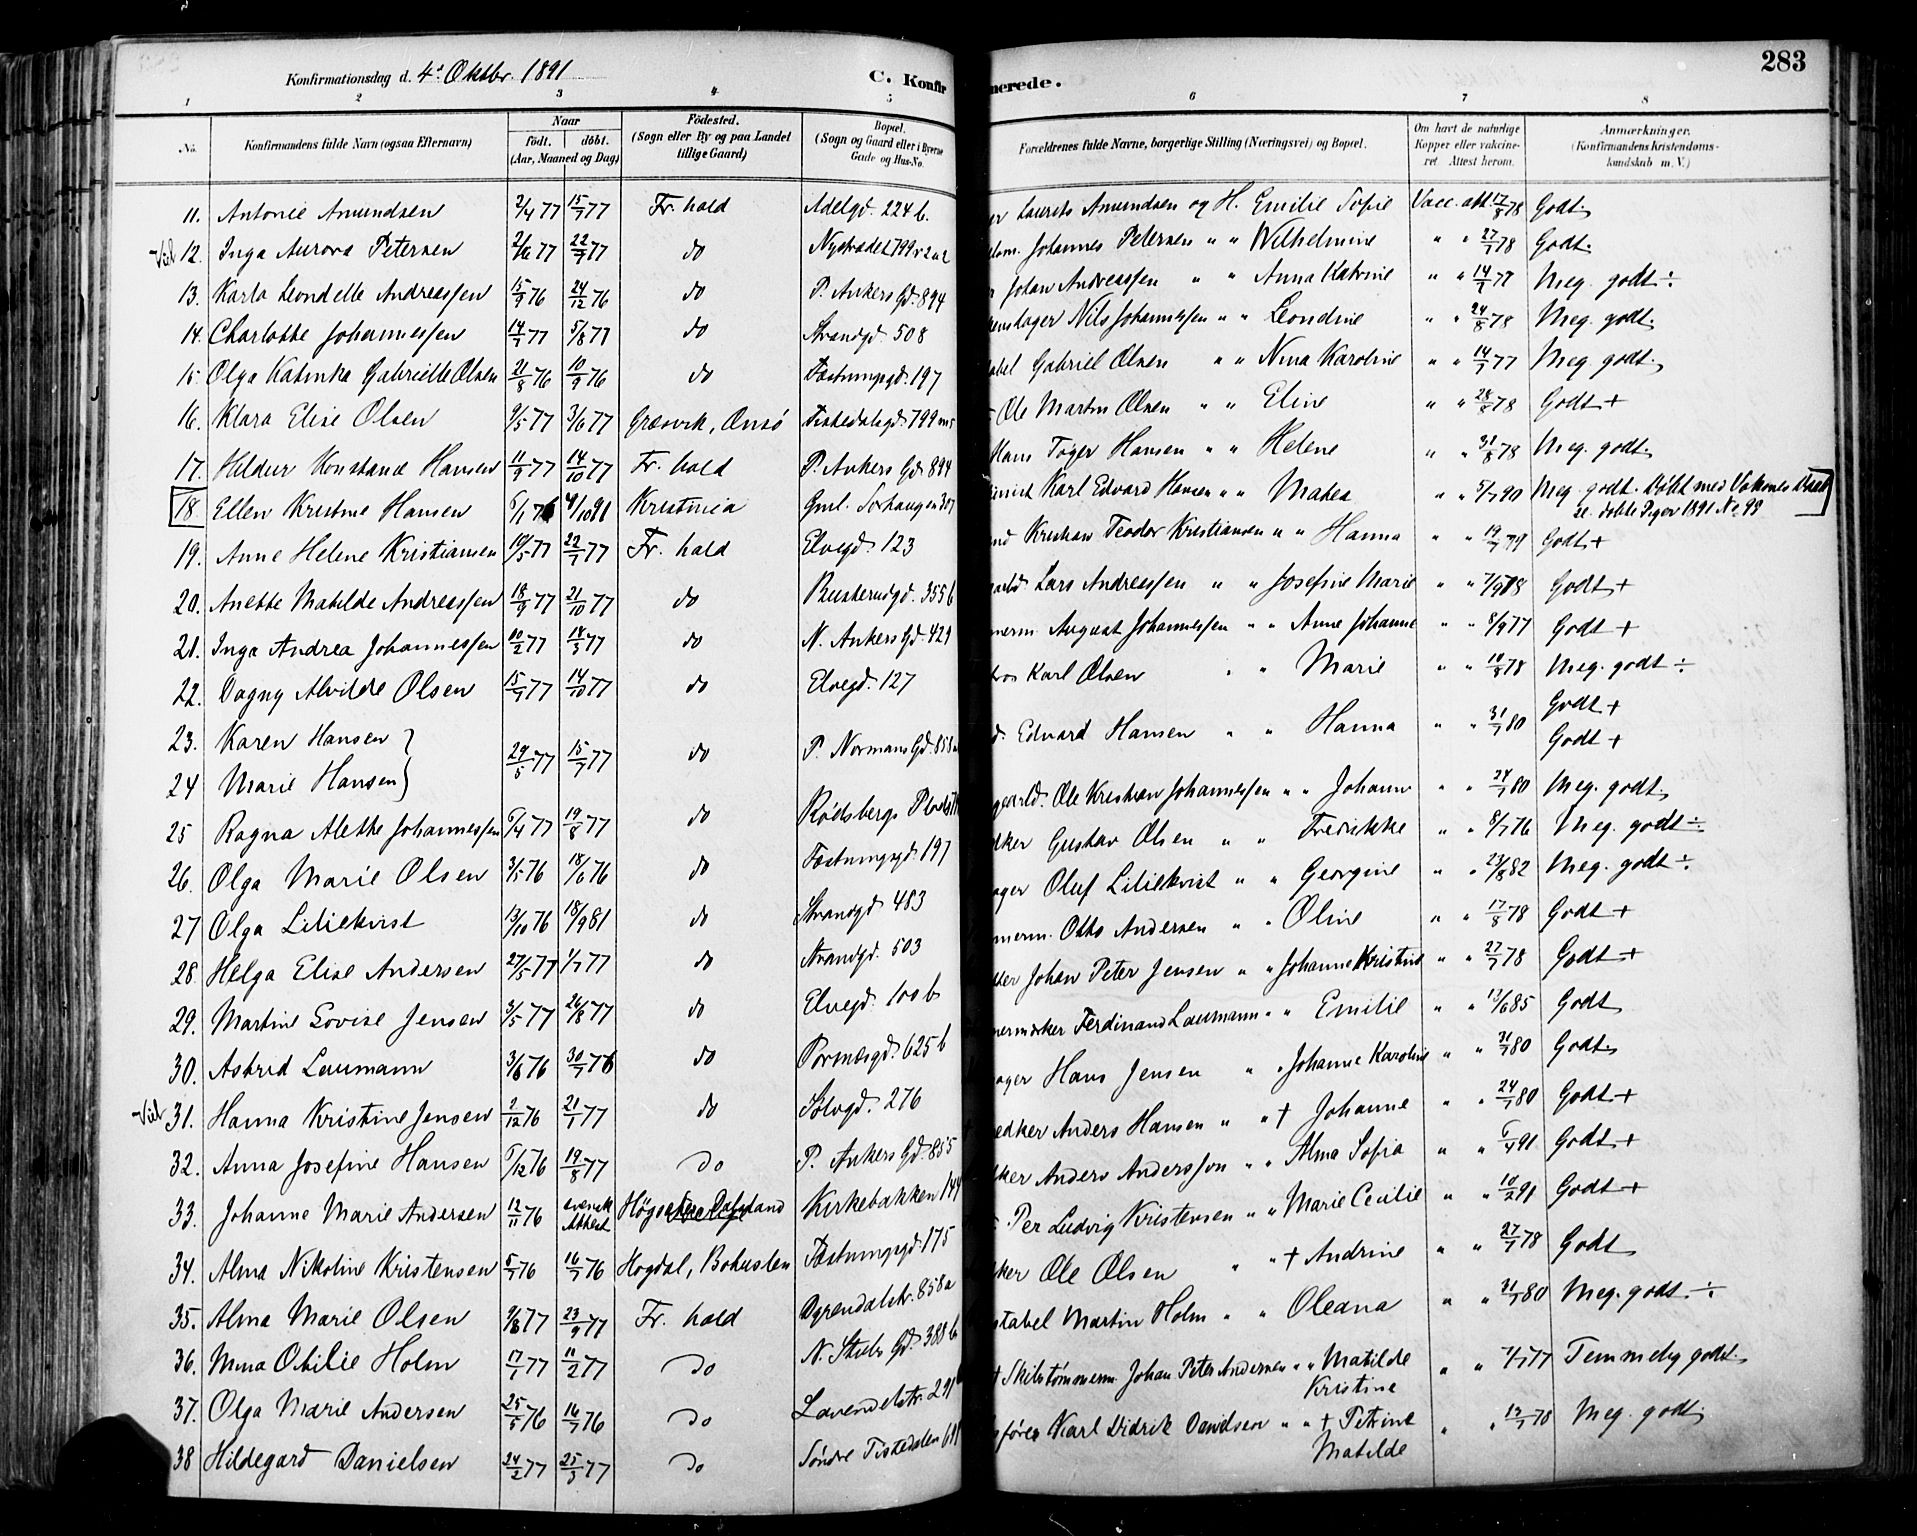 283
Konfirmationsdag d. 4de Oktbr. 1891
C. Konfir
merede.
1 2 3 4 5 6 7 8
No. Konfirmandens fulde Navn (ogsaa Efternavn) Naar Födested. Bopæl. Forældrenes fulde Navne, borgerlige Stilling (Næringsvei) og Bopæl. Om havt de naturlige Anmærkninger.
födt. döbt. (Sogn eller By og paa Landet (Sogn og Gaard eller i Byerne Kopper eller vakcine- (Konfirmandens Kristendoms-
(Aar, Maaned og Dag) tillige Gaard) Gade og Hus-No. ret Attest herom. kundskab m. V.)
11. Antonie Amundsen 2/4 77 15/7 77 Fr. hald Adelgd. 224 b. Laurits Amundsen og H. Emilie Sofie Vacc. att. 17/8 78 Godt.
Viel 12. Inga Aurora Petersen 22/7 77 do Johannes Petersen " " Wilhelmine " " 27/7 78 Godt.
13. Karla Leondelle Andreassen 15/9 76 24/12 76 do P. Ankers Gd. 894 Johan Andreassen " " Anna Katrine " " 14/7 77 Meg. godt ÷
14. Charlotte Johannessen 14/7 77 5/8 77 do Strandgd. 508 Nils Johannessen " " Leondine " " 24/8 78 Meg. godt.
15 Olga Katinka Gabrielle Olsen 21/8 76 10/9 76 do Fæstningsgd. 197 Gabriel Olsen " " Nina Karoline " " 14/7 77 Meg godt.
16. Klara Elise Olsen 9/5 77 3/6 77 Græsvik, Onsö Tistedalsgd. 799 Ole Martin Olsen " " Eline " " 28/8 78 Godt +
17. Hildur Konstanse Hansen 11/9 77 14/10 77 Fr. hald P. Ankers Gd. 894 Hans Töger Hansen " " Helene " " 31/8 78 Meg. godt.
18 Ellen Kristine Hansen 6/1 76 4/10 91 Kristinia Gml. Sorhaugen 307 Karl Edvard Hansen " " Mathea " " 5/7 90 Meg. godt. Döbt med Voksnes Daab
se. döbte Piger 1891 No. 99
19. Anne Helene Kristiansen 10/5 77 22/7 77 Fr. hald Elvegd. 123 Kristian Teodor Kristiansen " " Hanna " " 19/7 79 Godt +
20. Anette Matilde Andreassen 18/9 77 21/10 77 do Busterudgd. 355 b Lars Andreassen " " Josefine Marie " " 7/9 78 Godt +
21. Inga Andrea Johannessen 10/2 77 18/3 77 do N. Ankers Gd. 429 August Johannessen " " Anne Johanne " " 8/9 77 Godt +
22. Dagny Alvilde Olsen 15/7 77 14/10 77 do Elvegd. 127 Karl Olsen " " Marie " " 10/8 78 Meg. godt ÷
23. Karen Hansen } 29/5 77 15/7 77 do P. Normans Gd. 858 Edvard Hansen " " Hanna " " 31/7 80 Godt +
24 Marie Hansen } Godt +
25 Ragna Alette Johannessen 6/4 77 19/8 77 do Rödsbergs Ole Kristian Johannessen " " Johanne " " 24/7 80 Meg. godt.
26. Olga Marie Olsen 3/5 76 18/6 76 do Fæstningsgd. 197 Gustav Olsen " " Fredrikke " " 8/7 76 Meg. godt ÷
27 Olga Liliekvist 13/10 76 18/9 81 do Strandgd. 483 Oluf Liliekvist " " Georgine " " 23/8 82 Meg. godt ÷
28. Helga Elise Andersen 27/5 77 1/7 77 do Strandgd. 503 Otto Andersen " " Oline " " 17/8 78 Godt +
29. Martine Lovise Jensen 3/5 77 26/8 77 do Elvegd. 100 b Johan Peter Jensen " " Johanne Kristine " " 27/7 78 Godt +
30. Astrid Laumann 3/6 76 30/7 76 do Pormæsgd. 625 b Ferdinand Laumann " " Emilie " " 13/6 85 Godt
Viel 31. Hanna Kristine Jensen 2/12 76 21/1 77 do Sölvgd. 276 Hans Jensen " " Johanne Karoline " " 31/7 80 Godt.
32. Anna Josefine Hansen 6/12 76 19/8 77 do P. Ankers Gd. 855 Anders Hansen " " † Johanne " " 24/7 80 Godt +
33. Johanne Marie Andersen 12/11 76 svensk Attest Kirkebakken 144 Anders Andersson " " Alma Sofia " " 6/4 91 Godt +
34. Alma Nikoline Kristensen 5/7 76 16/7 76 Hogdal, Bohuslen Fæstningsgd. 175 Per Ludvig Kristensen " " Marie Cecilie " " 10/2 91 Godt +
35. Alma Marie Olsen 9/8 77 23/9 77 Fr. hald Dyrendalstr. 858 a Ole Olsen " " † Andrine " " 27/7 78 Godt
36. Mina Otilie Holm 17/1 77 11/2 77 do N. Stubs Gd. 388 b Martin Holm " " Oleana " " 31/7 80 Meg. godt. ÷
37. Olga Marie Andersen 25/5 76 16/7 76 do Lavendelstr. 291 † Skibstømmerm. Johan Peter Andersen " " Matilde " " 7/7 77 Temmelig godt.
Kristine
38 Hildegard Danielsen 24/2 77 25/3 77 do Söndre Tistedalen Karl Didrik Danielsen " " † Petrine " " 13/7 78 Meg. godt.
Matilde